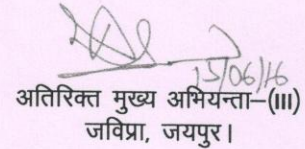 15/06/16
अतिरिक्त मुख्य अभियन्ता–(III)
जविप्रा, जयपुर।